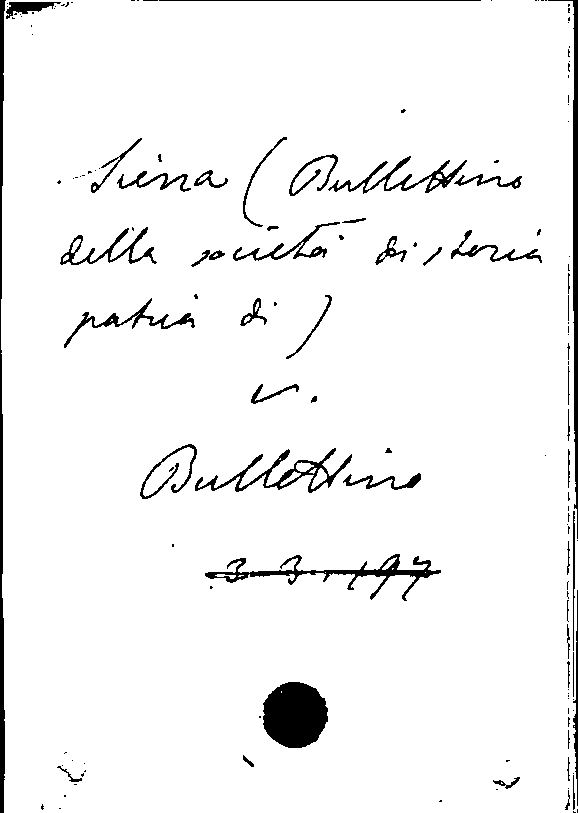 Siena (Bullettino
della società di storia
patria di)
v.
Bullettino
3 3. 197